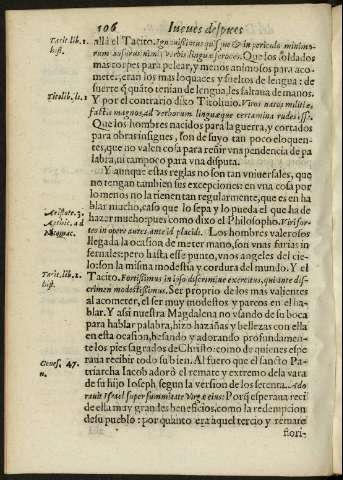 106 Iueues despues
Tacit. lib. 1.
hist.
allá el Tacito. Ignauissimus quisque & in periculo minimo-
rum ausurus nimij verbis linguæ feroces. Que los soldados
mas torpes para pelear, y menos animosos para aco-
meter, eran los mas loquaces y sueltos de lengua: de
suerte q̃ quãto tenian de lengua, les faltaua de manos.
Titolib. li. 1
Y por el contrario dixo Titoliuio. Viros natos militiæ,
factis magnos, ad verborum linguæque certamina rudes esse.
Que los hombres nacidos para la guerra, y cortados
para obras insignes, son de suyo tan poco eloquen-
tes, que no valen cosa para reñir vna pendencia de pa
labra, ni tampoco para vna disputa.
Y aunque estas reglas no son tan vniuersales, que
no tengan tambien sus excepciones: en vna cosa por
lo menos no la tienen tan regularmente, que es en ha
blar mucho, caso que lo sepa y lo pueda el que ha de
Aristote. 3.
ad
Nicomac.
hazer mucho: pues como dixo el Philosopho. Viri for-
tes in opere acres, ante id placidi. Los hombres valerosos
llegada la ocasion de meter mano, son vnas furias in
fernales: pero hasta esse punto, vnos angeles del cie-
lo: son la misma modestia y cordura del mundo. Y el
Tacit. lib. 2.
hist.
Tacito. Fortissimus in ipso discrimine exercitus, qui ante dis-
crimen modestissimus. Ser proprio de los mas valientes
al acometer, el ser muy modestos y parcos en el ha-
blar. Y asi nuestra Magdalena no vsando de su boca
para hablar palabra, hizo hazañas y bellezas con ella
en esta ocasion, besando y adorando profundamen-
te los pies sagrados de Christo: como de quien es espe
raua recibir todo su bien. Al fuero que el sancto Pa-
Genes. 47.
n.
triarcha Iacob adoró el remate y extremo dela vara
de su hijo Ioseph, segun la version de los setenta. Ado
rauit Israel super summitate Virgæ eius: Porq̃ esperaua reci
bir de ella muy grandes beneficios, como la redempcion
de su pueblo: por quanto era aquel tercio y remate
flori-